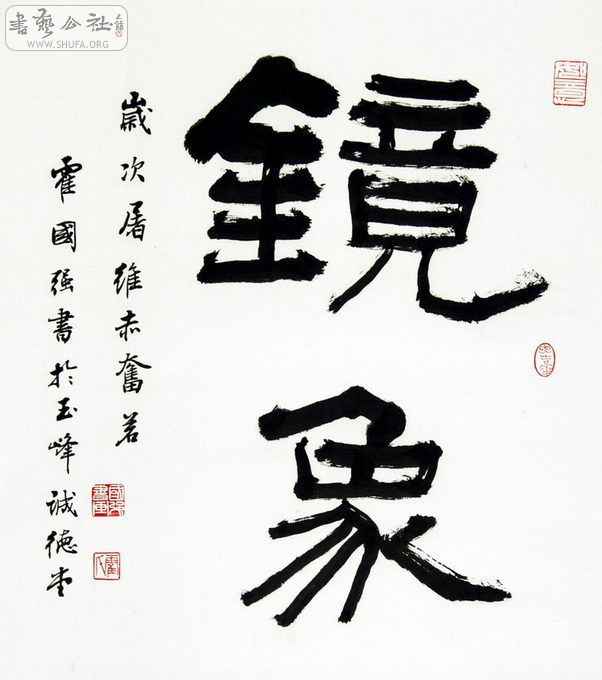 書藝公社
WWW.SHUFA.ORG
鏡象
歲次屠維赤奮若
霍國强書於玉峰誠德堂